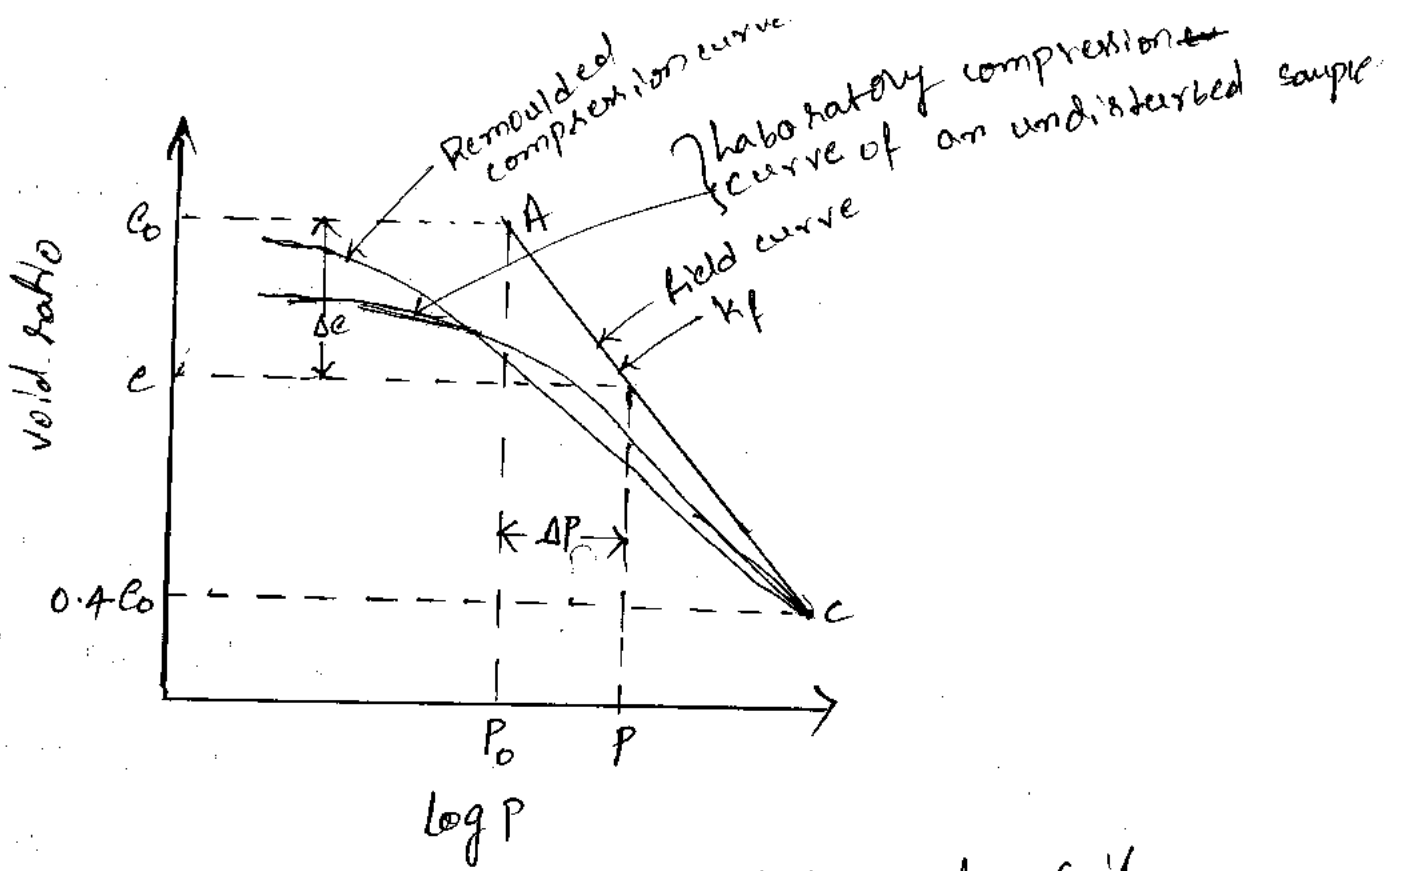 Remoulded
compression curve.
Laboratory compression
curve of an undisturbed sample.
field curve
Kf
A
e0
Δe
e
void ratio
ΔP
0.4e0
C
P0
P
log P